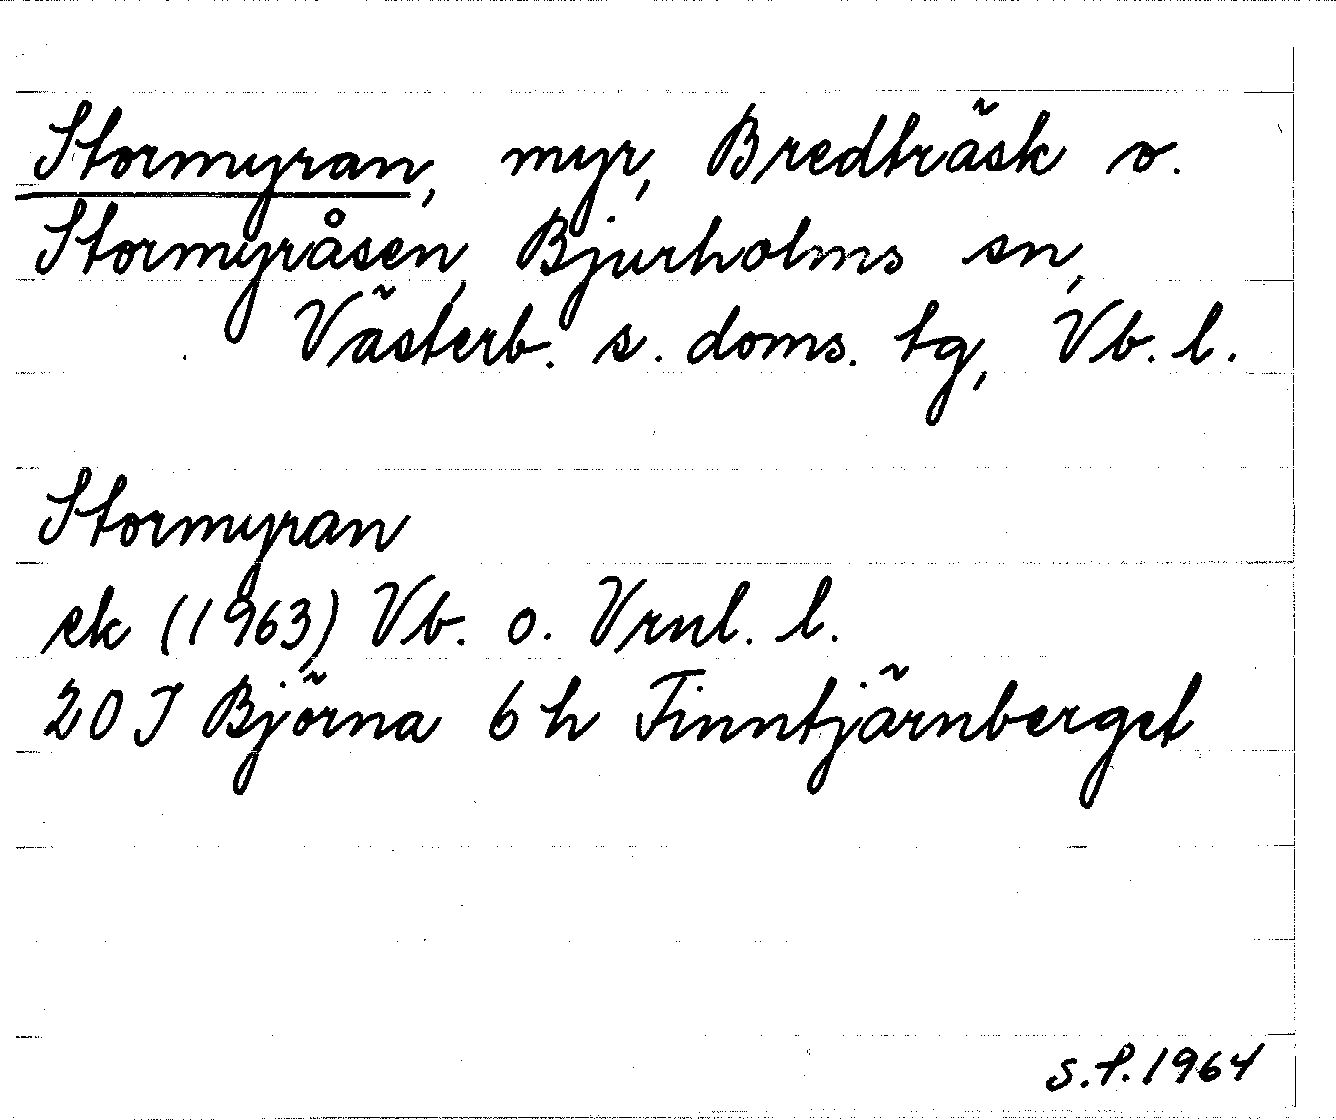 Stormyran, myr, Bredträsk o.
Stormyråsen, Bjurholms sn,
Västerb. s. doms. tg, Vb. l.
Stormyran
ek (1963) Vb. o. Vrnl. l.
20 I Björna 6 h Finntjärnberget
S.P. 1964